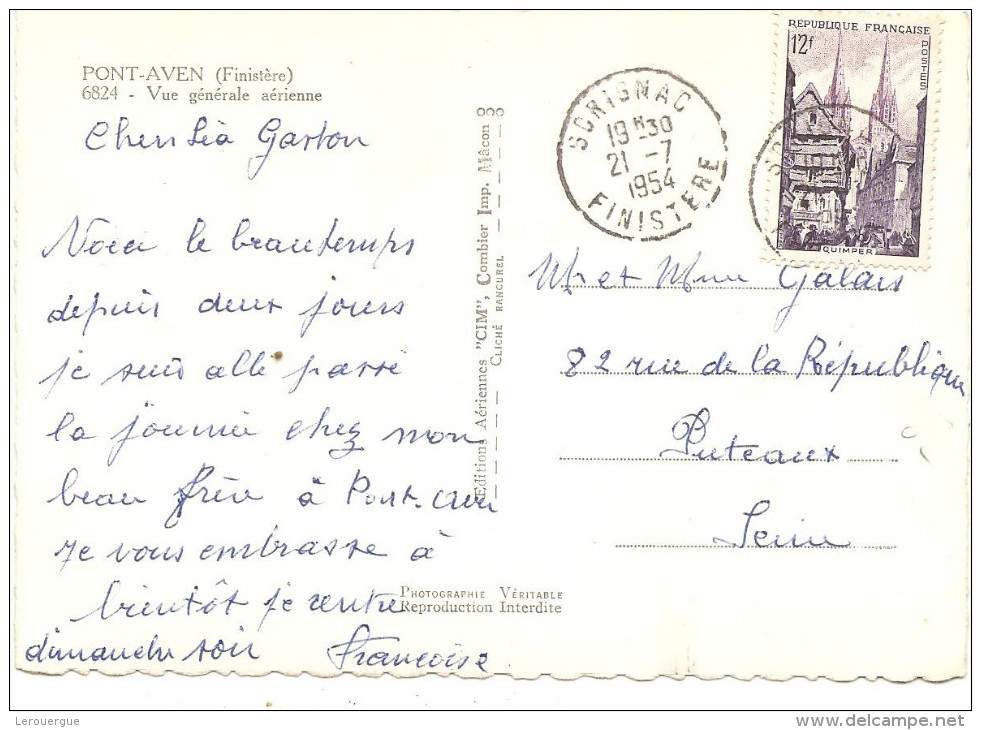 PONT-AVEN (Finistère)
6824 - Vue générale aérienne
Cher Léa Gaston
Voici le beau temps
depuis deux jours
je suis allé passé
la journée chez mon
beau frère à Pont-Aven
Je vous embrasse à
bientôt je rentre
dimanche soir
Françoise
Editions Aériennes "CIM", Combier Imp. Mâcon
CLICHÉ RANCUREL
PHOTOGRAPHIE VÉRITABLE
Reproduction Interdite
SCRIGNAC
19H30
21 -7
1954
FINISTERE
RÉPUBLIQUE FRANÇAISE
12f
POSTES
QUIMPER
Mr et Mme Galais
82 rue de la République
Puteaux
Seine
Lerouergue
www.delcampe.net